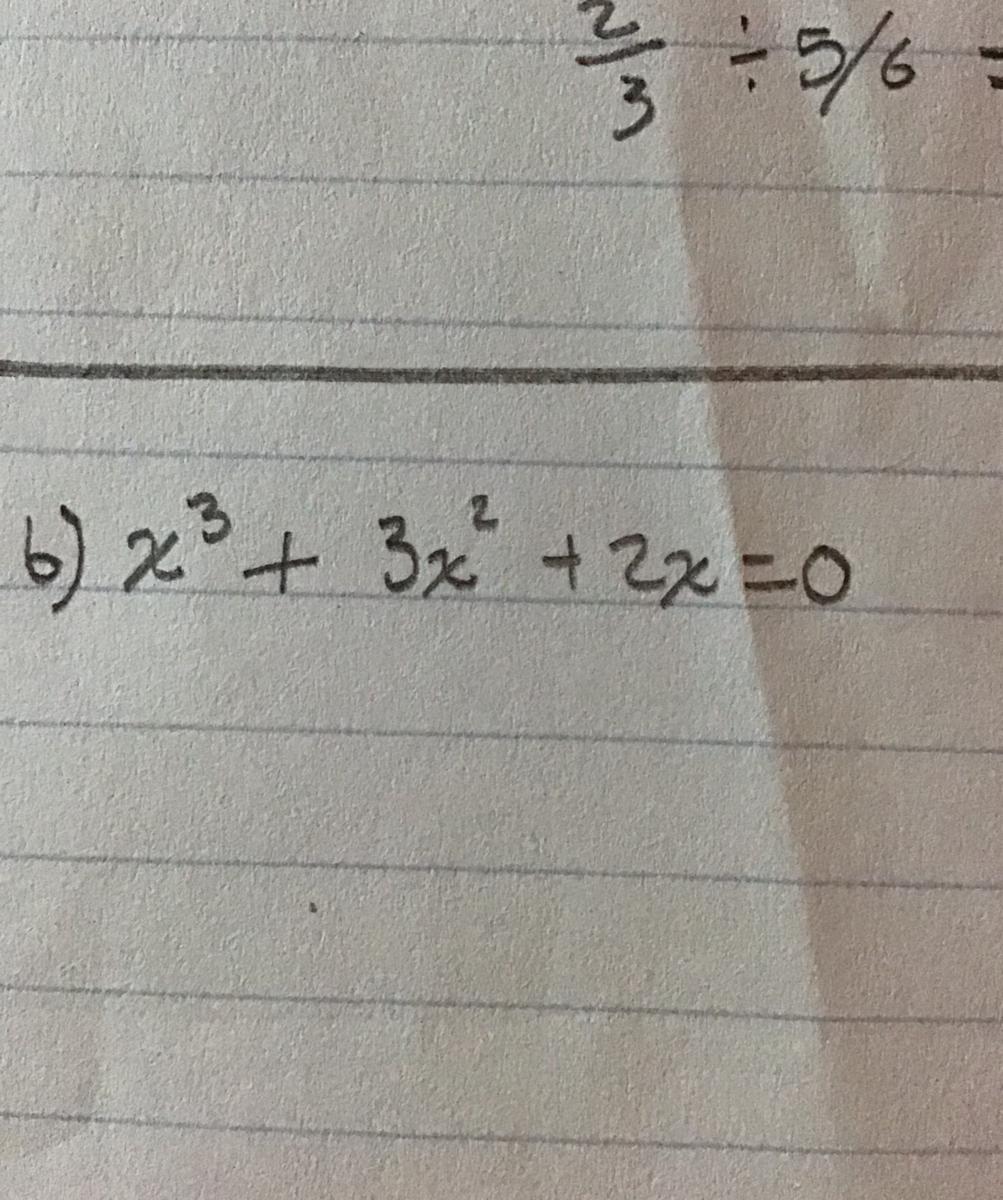 2/3 ÷ 5/6 =
b) x³ + 3x² + 2x = 0